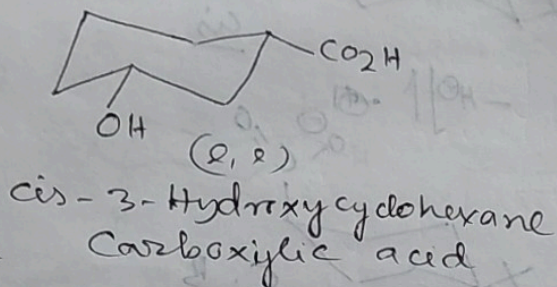 CO2H
OH
(e, e)
cis-3-Hydroxycyclohexane
Carboxylic acid